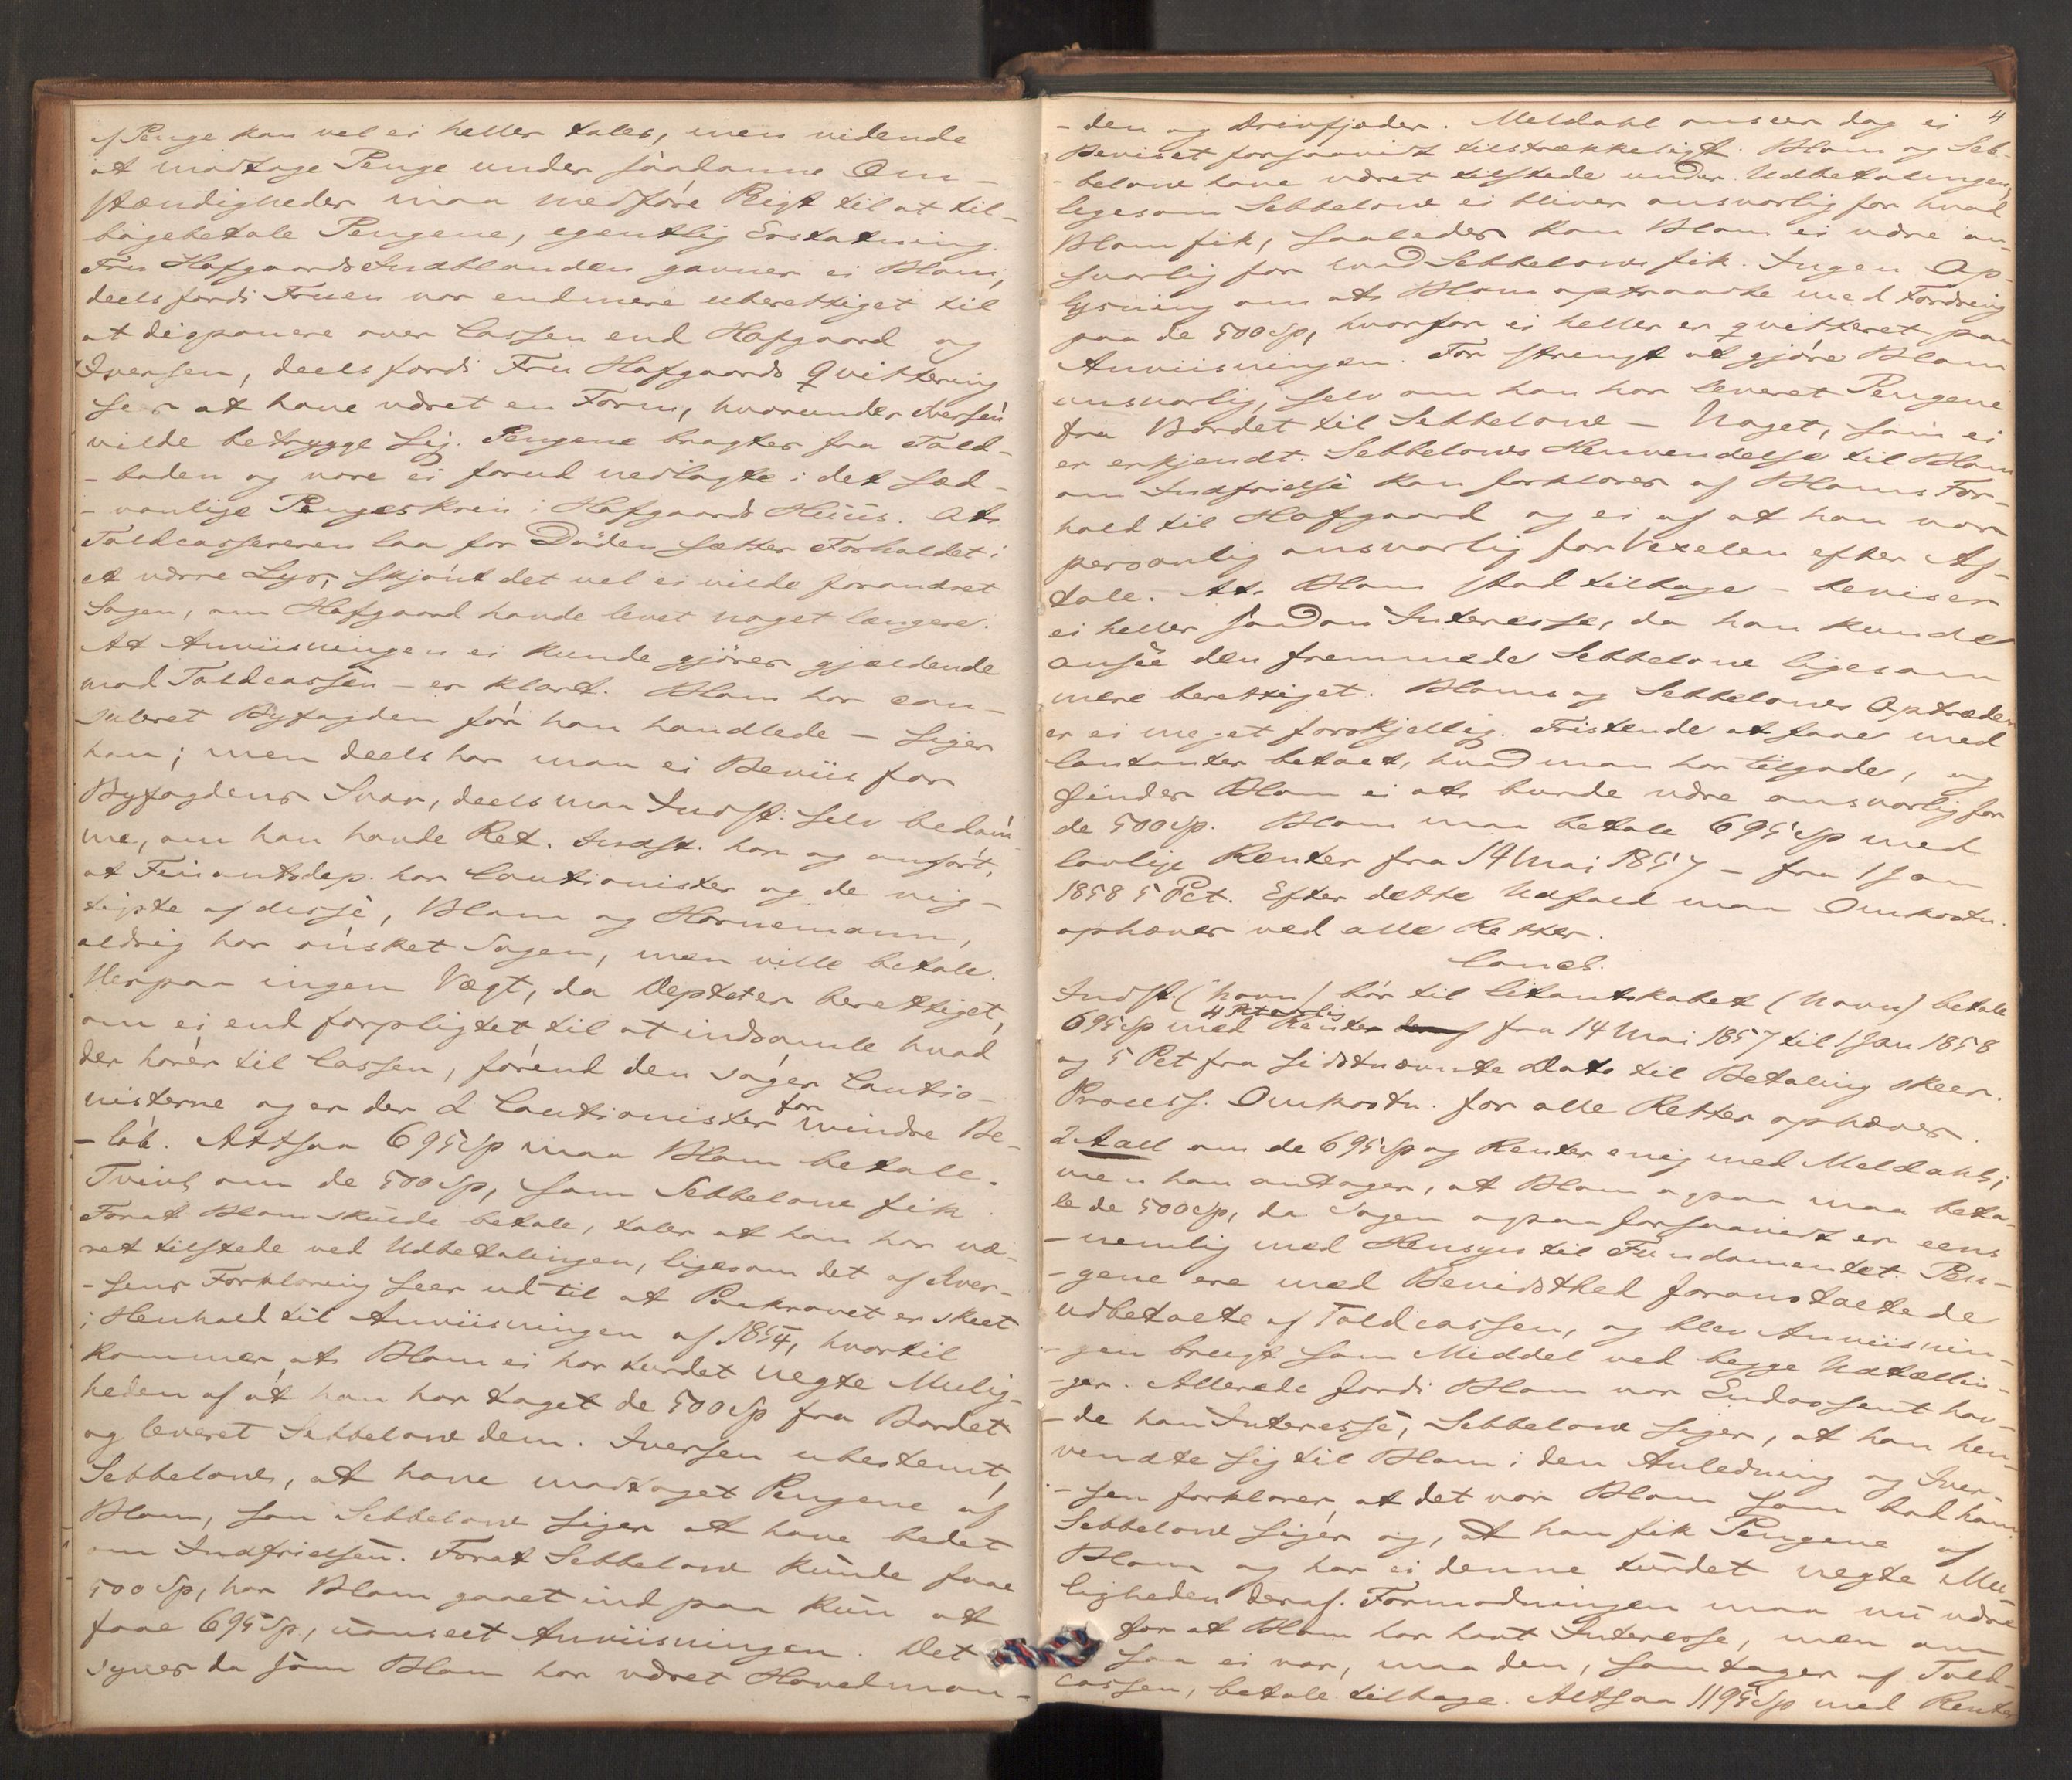 af Penge kan vel ei heller tales, men vidende
at modtage Penge under saadanne Om-
stændigheder maa medføre Pligt til at til-
bagebetale Pengene, egentlig Erstatning.
Fru Hafgaards Indblanden gavner ei Blom,
deels fordi Fruen var endmere uberettiget til
at disponere over Cassen end Hafgaard og
Iversen, deels fordi Fru Hafgaards Qvittering
ser at have været en Form, hvorunder Iversen
vilde betrygge sig. Pengene bragtes fra Told-
-boden og vare ei forud nedlagte i det sæd-
-vanlige Pengeskrin i Hafgaards Huus. At
Toldcassereren laa for Døden sætter Forholdet i
et værre Lys, skjønt det vel ei vilde forandret
Sagen, om Hafgaard havde levet noget længere.
At Anviisningen ei kunde gjøres gjældende
mod Toldcassen - er klart. Blom har con-
suleret Byfogden før han handlede - siger
han; men deels har man ei Beviis for
Byfogdens Svar, deels maa Indst. selv bedøm-
me, om han havde Ret. Indst. har og anført,
at Finantsdep. har Cautionister og de vig-
tigste af disse, Blom og Hornemann,
aldrig har ønsket Sagen, men ville betale.
Herpaa ingen Vægt, da Deptet er berettiget,
om ei end forpligtet til at indsamle hvad
der hører til Cassen, førend den søger Cautio-
nisterne og er der 2 Cautionister for mindre Be-
-løb. Altsaa 695 Sp maa Blom betale.
Tvivl om de 500 Sp, som Sebbelow fik.
Forat Blom skulde betale, taler at han har væ-
ret tilstede ved Udbetalingen, ligesom det af Iver-
-sens Forklaring seer ud til at Paakravet er skeet
i Henhold til Anviisningen af 1854, hvortil
kommer, at Blom ei har turdet negte Mulig-
heden af at han har taget de 500 Sp fra Bordet
og leveret Sebbelow dem. Iversen ubestemt,
Sebbelows, at have modtaget Pengene af
Blom, som Sebbelow siger at have bedet
om Indfrielsen. Forat Sebbelow kunde faae
500 Sp, har Blom gaaet ind paa kun at
faae 695 Sp, uanseet Anviisningen. Det
synes da som Blom har været Hovedman-
4
-den og Drivfjeder. Meldahl anseer dog ei
Beviset forsaavidt tilstrækkeligt. Blom og Seb-
-below have været tilstede under Udbetalingen,
ligesom Sebbelow ei bliver ansvarlig for hvad
Blom fik, saaledes kan Blom ei være an-
svarlig for hvad Sebbelow fik. Ingen Op-
lysning om at Blom optraadte med Fordring
paa de 500 Sp, hvorfor ei heller er qvitteret paa
Anviisningen. For strengt at gjøre Blom
ansvarlig, selv om han har leveret Pengene
fra Bordet til Sebbelow - Noget, som ei
er erkjendt. Sebbelows Henvendelse til Blom
om Indfrielse kan forklares af Bloms For-
hold til Hafgaard og ei af at han var
personlig ansvarlig for Vexelen efter Af-
tale. At Blom stod tilbage - beviser
ei heller saadan Interesse, da han kunde
ansee den fremmede Sebbelow ligesom
mere berettiget. Bloms og Sebbelows Optræden
er ei meget forskjellig. Fristende at faae med
Contanter betalt, hvad man har tilgode, og
finder Blom ei at burde være ansvarlig for
de 500 Sp. Blom maa betale 695 Sp med
lovlige Renter fra 14 Mai 1857 - fra 1 Jan
1858 5 Pct. Efter dette Udfald maa Omkostn.
ophæves ved alle Retter.
Concl.
Indst. (Navn) bør til Citantskabet (Navn) betale
695 Sp med 4 Pct aarlig Renter fra 14 Mai 1857 til 1 Jan 1858
og 5 Pct fra sidstnævnte Dato til Betaling skeer.
Process. Omkostn. for alle Retter ophæves.
2 Aall om de 695 Sp og Renter enig med Meldahl;
men han antager, at Blom ogsaa maa beta-
le de 500 Sp, da Sagen ogsaa forsaavidt er eens
-nemlig med Hensyn til Fundamentet. Pen-
-gene ere med Bevidsthed foranstaltede
udbetalte af Toldcassen, og blev Anviisnin-
-gen brugt som Middel ved begge Udtællin-
-ger. Allerede fordi Blom var Endossent hav-
-de han Interesse, Sebbelow siger, at han hen-
vendte sig til Blom i den Anledning og Iver-
-sen forklarer, at det var Blom som bad ham.
Sebbelow siger og, at han fik Pengene af
Blom og har ei denne turdet negte Mu-
ligheden deraf. Formodningen maa nu være
for at Blom har havt Interesse, men om
saa ei var, maa den, som tager af Told-
cassen, betale tilbage. Altsaa 1195 Sp med Renter